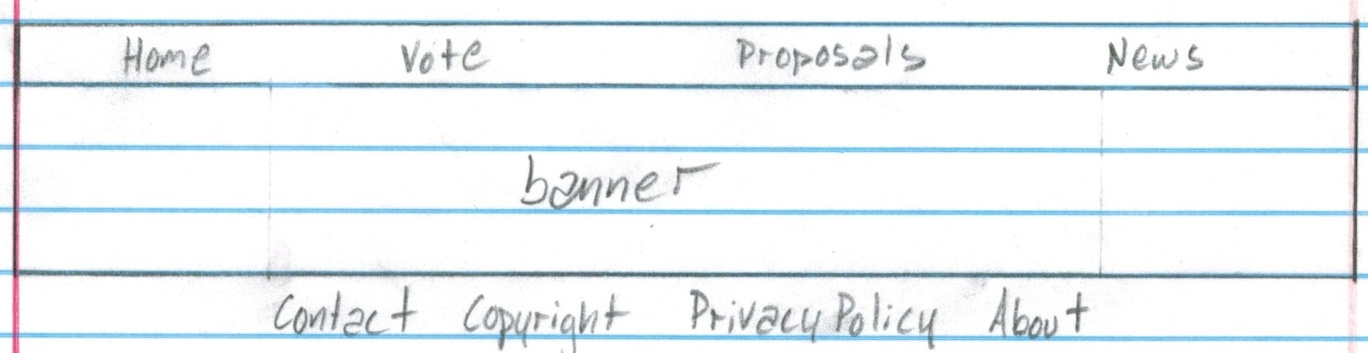 Home Vote Proposals News
banner
Contact Copyright Privacy Policy About